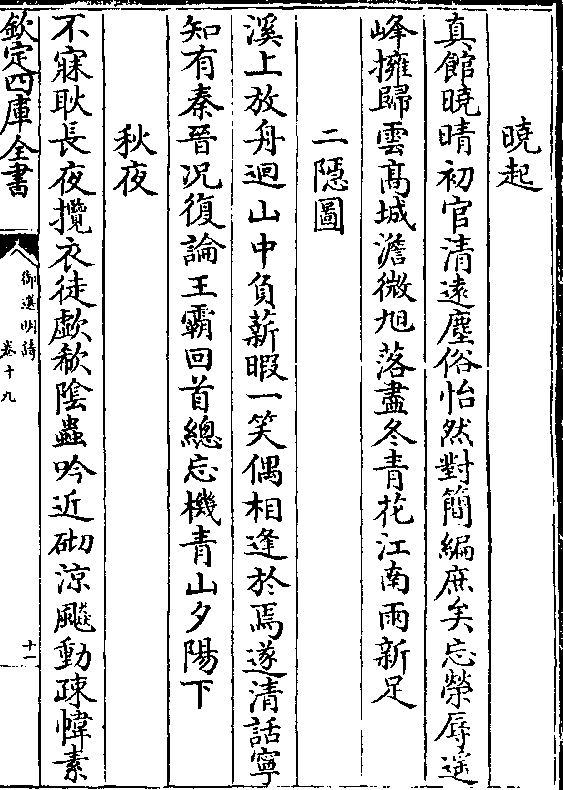 曉起
真館曉晴初官清遠塵俗怡然對簡編庶矣忘榮辱遥
峰擁歸雲髙城澹微旭落盡冬青花江南雨新足
二隠圖
溪上放舟迴山中負薪暇一笑偶相逢於焉遂清話寧
知有秦晉况復論王霸回首總忘機青山夕陽下
秋夜
不寐耿長夜攬衣徒歔欷陰蟲吟近砌涼飇動疎幃素
欽定四庫全書
御選明詩
卷十九
十二